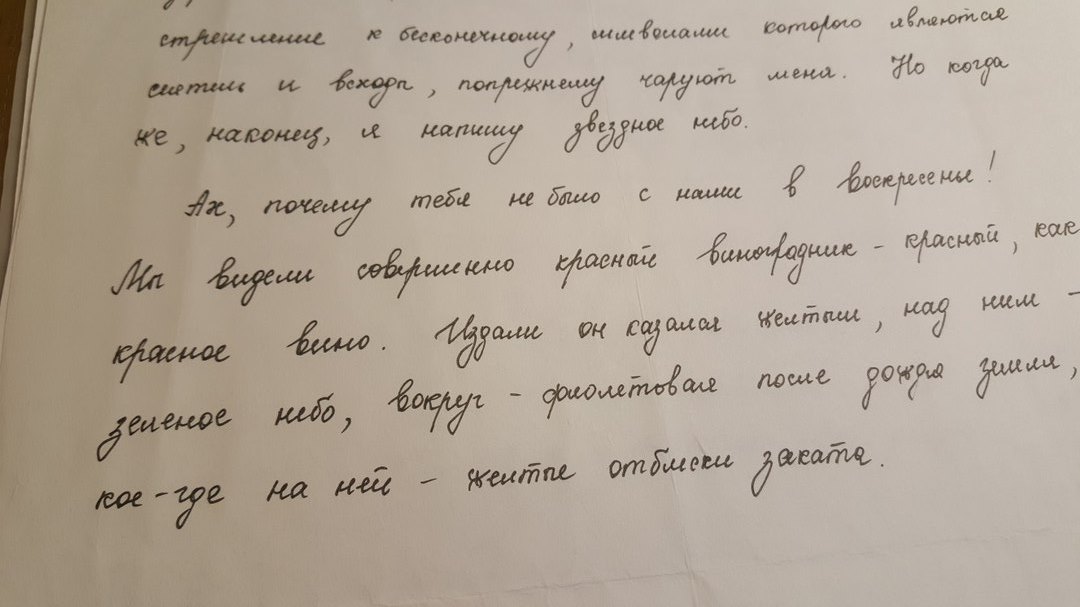 стремление к бесконечному, символами которого являются
сеятель и всходы, попрежнему чаруют меня. Но когда
же, наконец, я напишу звездное небо.
Ах, почему тебя не было с нами в воскресенье!
Мы видели совершенно красный виноградник - красный, как
красное вино. Издали он казался желтым, над ним -
зеленое небо, вокруг - фиолетовая после дождя земля,
кое-где на ней - желтые отблески заката.